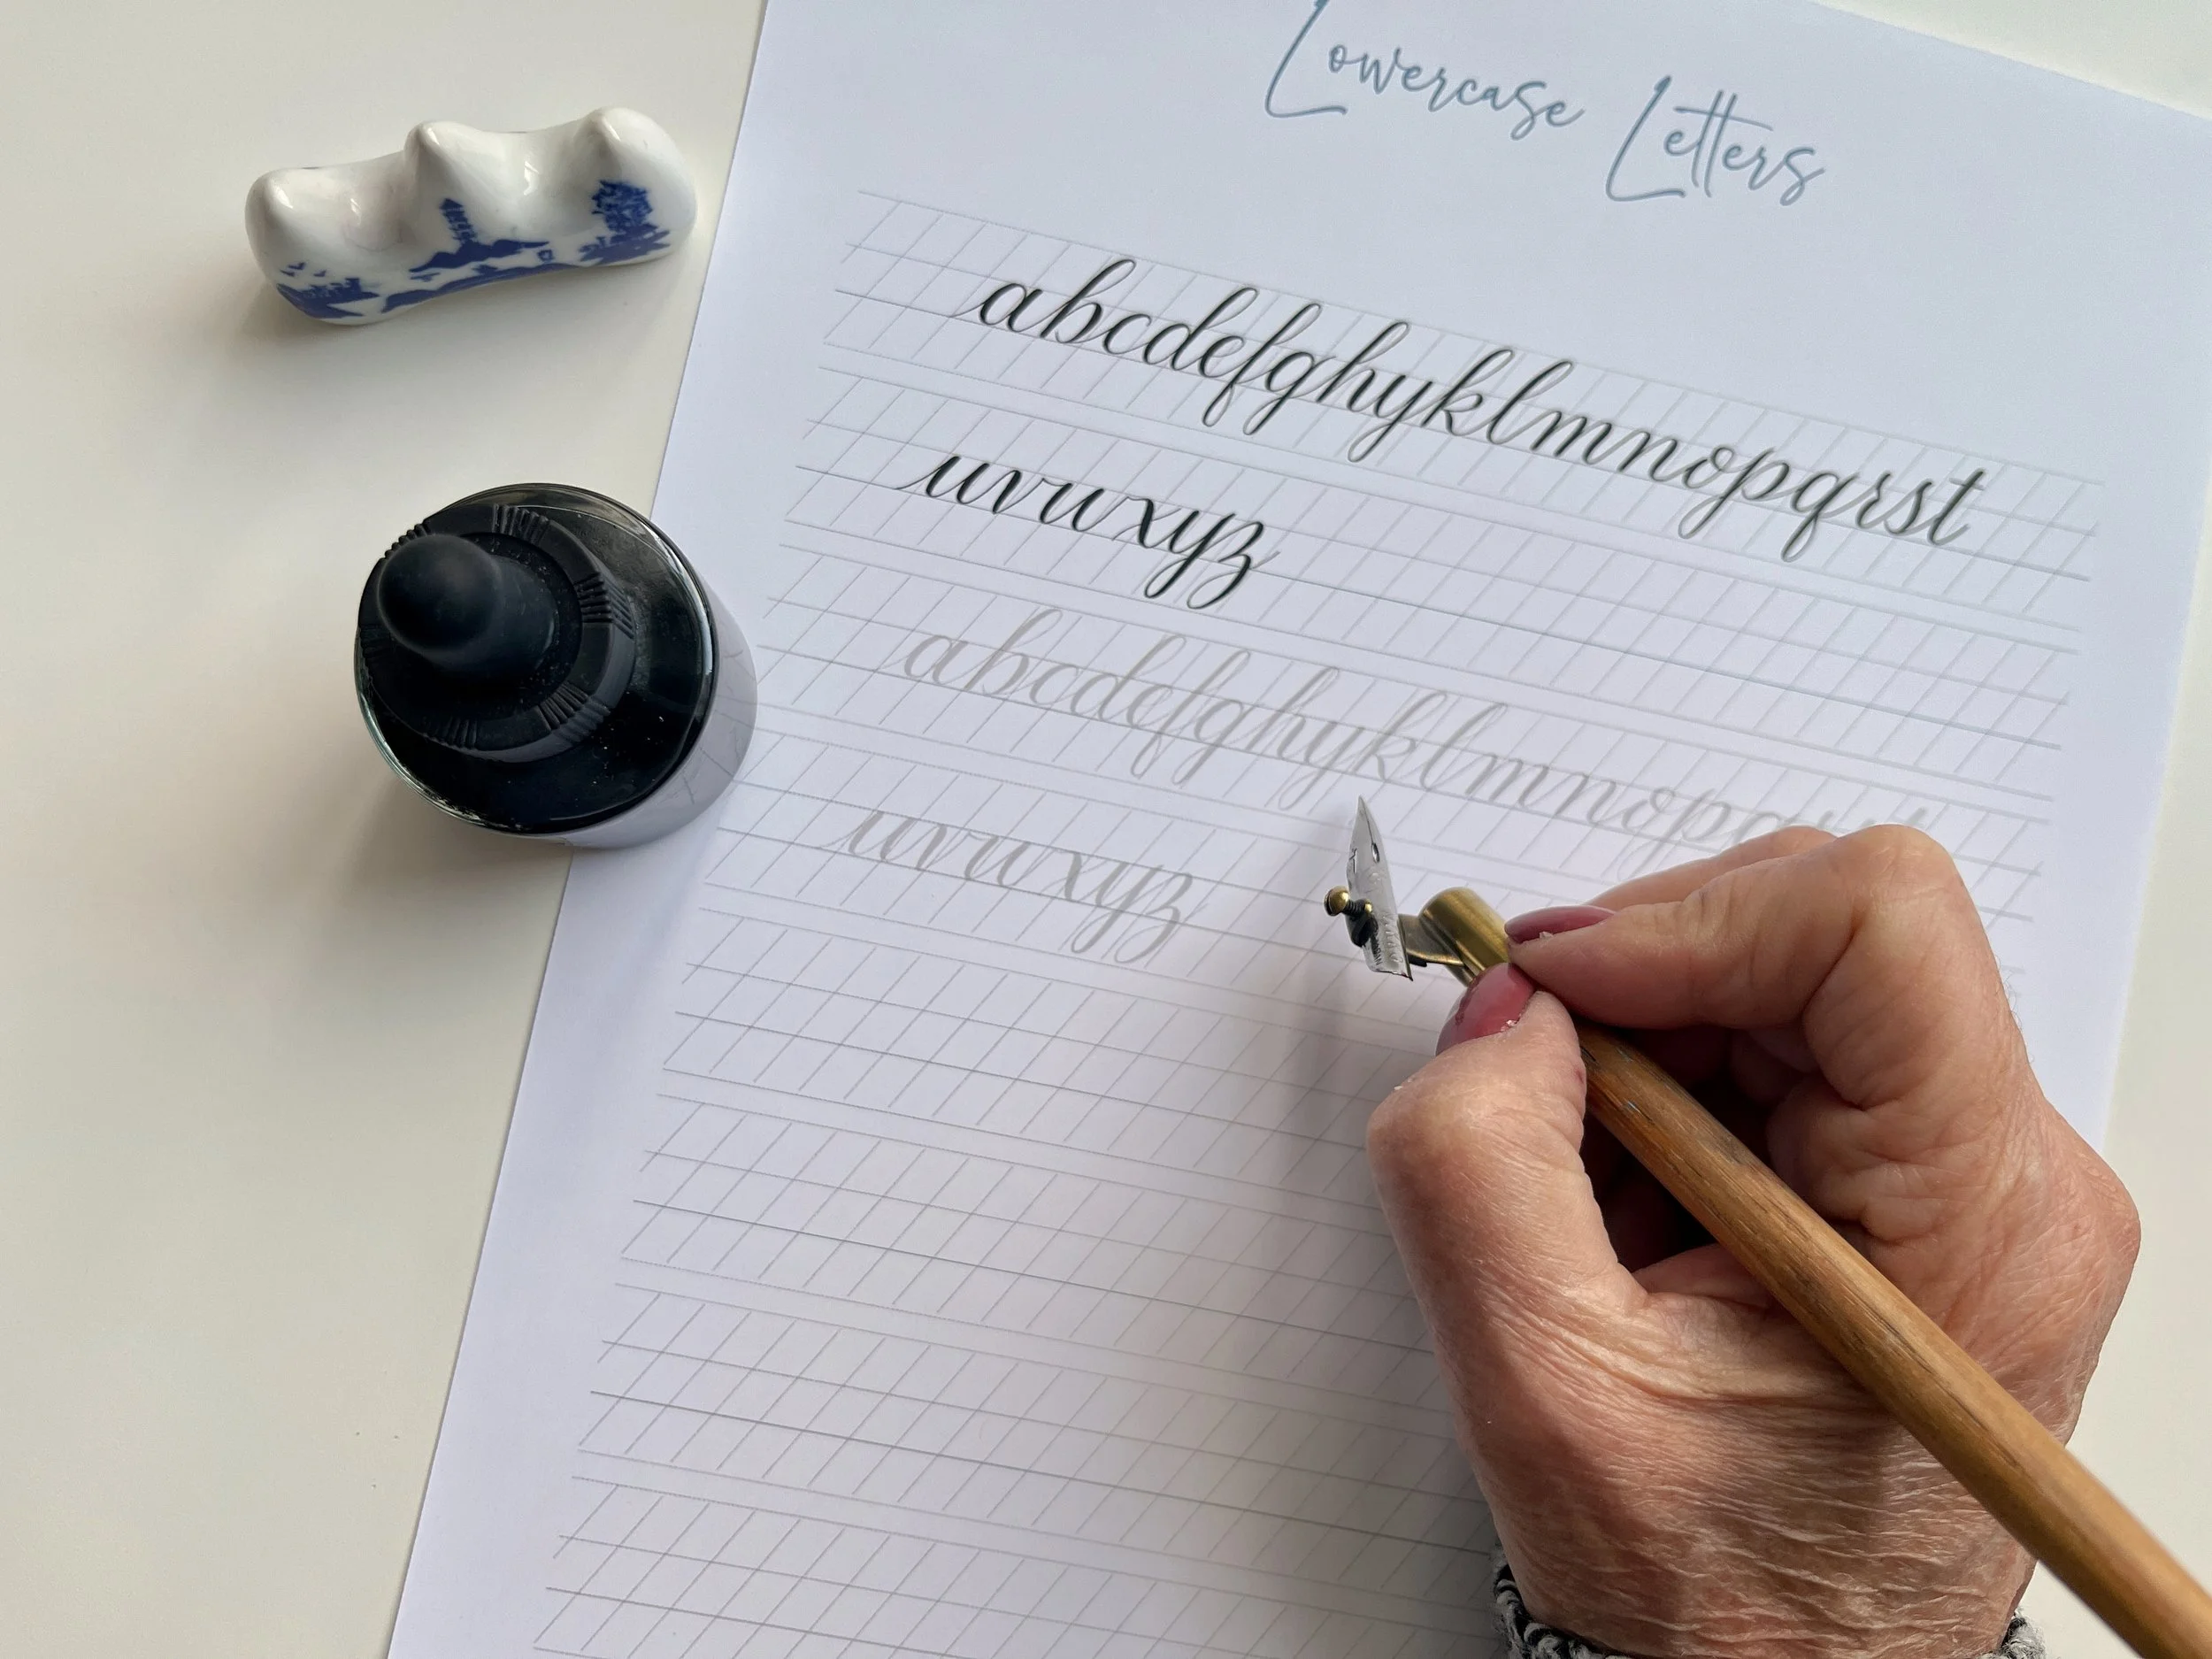 Lowercase Letters
abcdefghijklmnopqrst
uvwxyz
abcdefghijklmnopqrst
uvwxyz